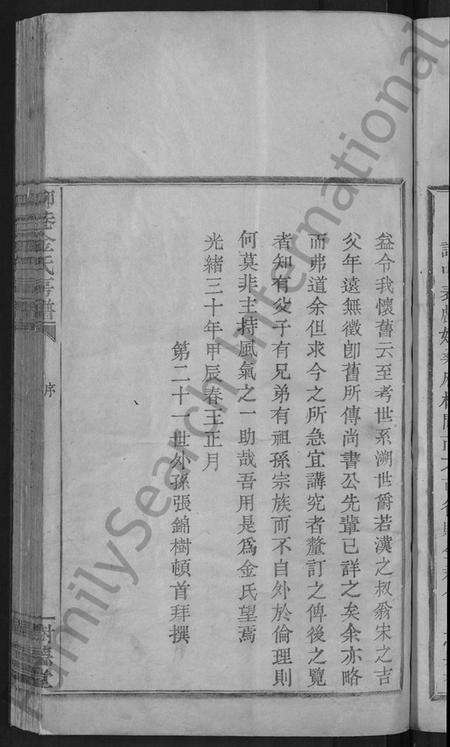 益令我懷舊云至考世系溯世爵若漢之叔翁宋之吉
父年遠無徵卽舊所傳尚書公先輩已詳之矣余亦略
而弗道余但求今之所急宜講究者釐訂之俾後之覽
者知有父子有兄弟有祖孫宗族而不自外於倫理則
何莫非主持風氣之一助哉吾用是爲金氏望焉
光緒三十年甲辰春王正月
第二十一世外孫張錦樹頓首拜撰
序
FamilySearch International